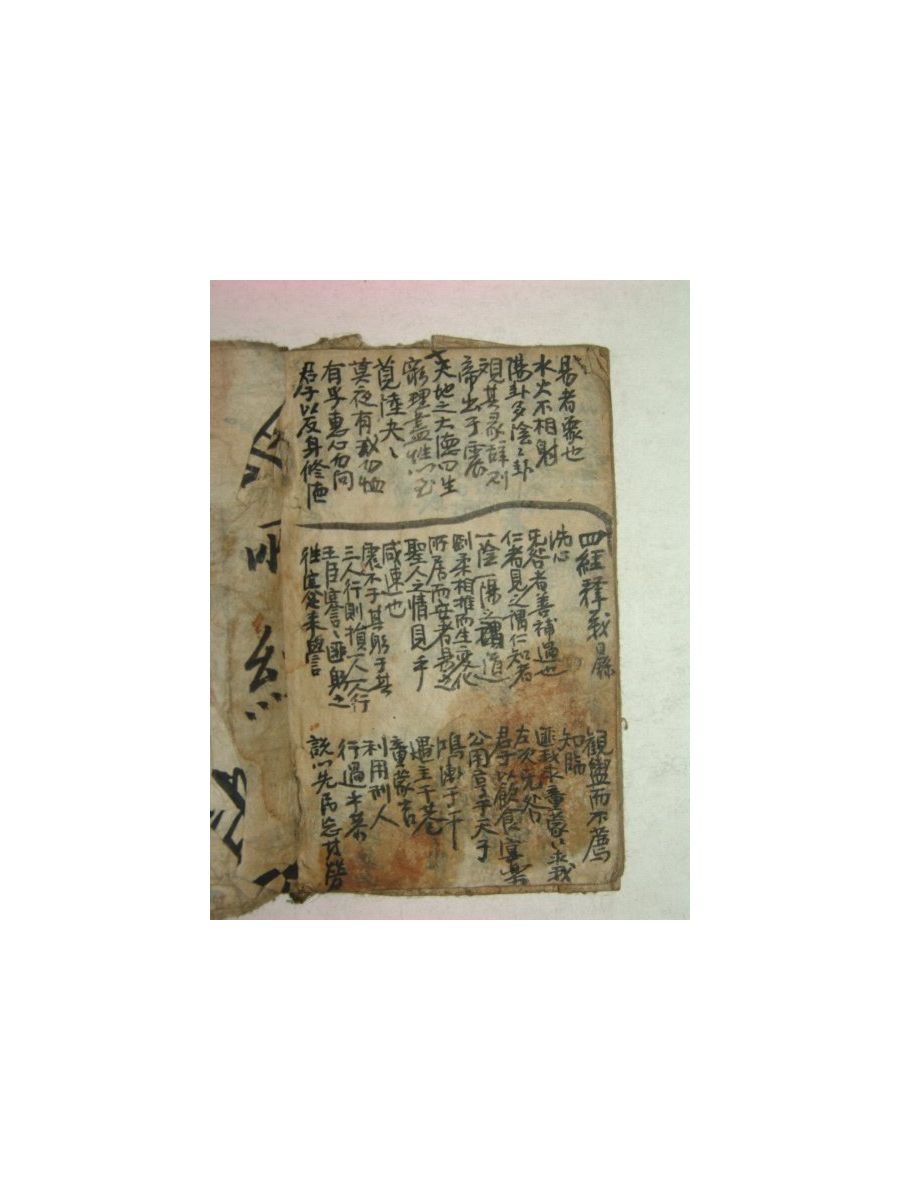 易者象也
水火不相射
陽卦多陰〻卦
觀其彖辭則
帝出于震
天地之大德曰生
窮理盡性以至
莧陸夬〻
莫夜有戎勿恤
有孚惠心勿問
君子以反身修德
四經釋義
洗心
无咎者善補過也
仁者見之謂仁知者
一陰一陽之謂道
剛柔相推而生變化
所居而安者易之
聖人之情見乎
咸速也
震不于其躬于其
三人行則損一人一人行
王臣蹇〻匪躬之
往蹇來譽
觀盥而不薦
知臨
匪我求童蒙〻求我
左次无咎
君子以飲食宴樂
公用亨于天子
鴻漸于干
遇主于巷
童蒙吉
利用刑人
行過乎恭
說以先民忘其勞